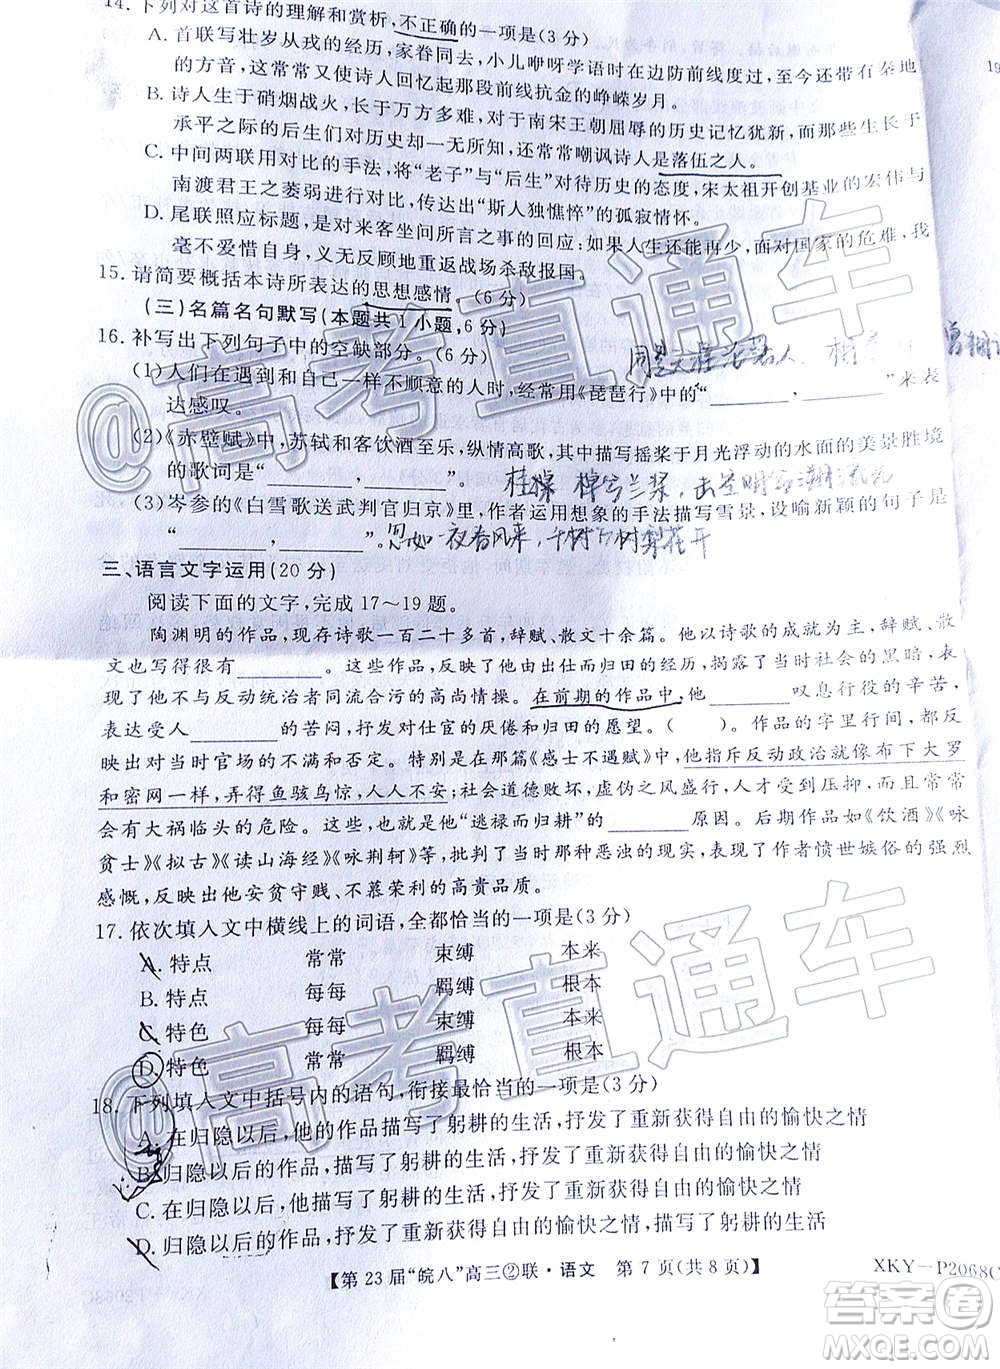 14. 下列对这首诗的理解和赏析,不正确的一项是(3 分)
A. 首联写壮岁从戎的经历,家眷同行,小儿咿呀学语时在边防前线度过,至今还带有秦地
的方音,这常常使诗人们回忆起那段前线抗金的峥嵘岁月。
B. 诗人生于硝烟战火,长于万方多难,对于南宋王朝屈辱的历史记忆犹新,而那些生于
承平之际的后生们对历史却一无所知,还常常嘲讽诗人是落伍之人。
C. 中间两联用对比的手法,将“老子”与“后生”对待历史的态度,宋太祖开创基业的宏伟与
南渡君王之萎弱进行对比,传达出“斯人独憔悴”的孤寂情怀。
D. 尾联照应标题,是对来客坐间所言之事的回应:如果人生还能再少,面对国家的危难,我
毫不爱惜自身,义无反顾地重返战场杀敌报国。
15. 请简要概括本诗所表达的思想感情。(6 分)
(三)名篇名句默写(本题共 1 小题,6 分)
16. 补写出下列句子中的空缺部分。(6 分)
(1)人们在遇到和自己一样不顺意的人时,经常用《琵琶行》中的“________,________”来表
达感叹。
(2)《赤壁赋》中,苏轼和客饮酒至乐,纵情高歌,其中描写摇桨于月光浮动的水面的美景胜境
的歌词是“________,________”。 桂棹兮兰桨,击空明兮溯流光
(3)岑参的《白雪歌送武判官归京》里,作者运用想象的手法描写雪景,设喻新颖的句子是
“________,________”。忽如一夜春风来,千树万树梨花开
三、语言文字运用(20 分)
阅读下面的文字,完成 17～19 题。
陶渊明的作品,现存诗歌一百二十多首,辞赋、散文十余篇。他以诗歌的成就为主,辞赋、散
文也写得很有________。这些作品,反映了他由出仕而归田的经历,揭露了当时社会的黑暗,表
现了他不与反动统治者同流合污的高尚情操。在前期的作品中,他________叹息行役的辛苦,
表达受人________的苦闷,抒发对仕宦的厌倦和归田的愿望。(  )。作品的字里行间,都反
映出他对当时官场的不满和愤慨。特别是在那篇《感士不遇赋》里,他指斥反动政治就像布下大罗
和密网一样,弄得鱼骇鸟惊,人人不安;社会道德败坏,虚伪之风盛行,人才受到压抑,而且显
有大祸临头的危险。这些,也就是他“逃禄而归耕”的________原因。后期作品如《饮酒》《咏
贫士》《拟古》《读山海经》《咏荆轲》等,都反映了当时那种恶浊的现实,表现了作者愤世嫉俗的强烈
感慨,反映出他安贫守贱、不慕荣利的高贵品质。
17. 依次填入文中横线上的词语,全都恰当的一项是(3 分)
A. 特点 常常 束缚 本来
B. 特点 每每 羁缚 根本
C. 特色 每每 束缚 根本
D. 特色 常常 羁缚 本来
18. 下列填入文中括号内的语句,衔接最恰当的一项是(3 分)
A. 在归隐以后,他的作品描写了躬耕的生活,抒发了重新获得自由的愉快之情
B. 归隐以后的作品,描写了躬耕的生活,抒发了重新获得自由的愉快之情
C. 在归隐以后,他描写了躬耕的生活,抒发了重新获得自由的愉快之情
D. 归隐以后的作品,抒发了重新获得自由的愉快之情,描写了躬耕的生活
【第 23 届“皖八”高三②联·语文 第 7 页(共 8 页)】 XKY—P2068C
@高考直通车
@高考直通车
答案圈
MXQE.COM